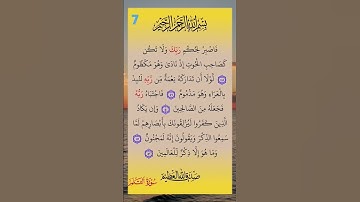 7
بسم الله الرحمن الرحيم
فَاصْبِرْ لِحُكْمِ رَبِّكَ وَلَا تَكُن
كَصَاحِبِ الْحُوتِ إِذْ نَادَىٰ وَهُوَ مَكْظُومٌ
لَّوْلَا أَن تَدَارَكَهُ نِعْمَةٌ مِّن رَّبِّهِ لَنُبِذَ
بِالْعَرَاءِ وَهُوَ مَذْمُومٌ فَاجْتَبَاهُ رَبُّهُ
فَجَعَلَهُ مِنَ الصَّالِحِينَ وَإِن يَكَادُ
الَّذِينَ كَفَرُوا لَيُزْلِقُونَكَ بِأَبْصَارِهِمْ لَمَّا
سَمِعُوا الذِّكْرَ وَيَقُولُونَ إِنَّهُ لَمَجْنُونٌ
وَمَا هُوَ إِلَّا ذِكْرٌ لِّلْعَالَمِينَ
صدق الله العظيم
سورة القلم